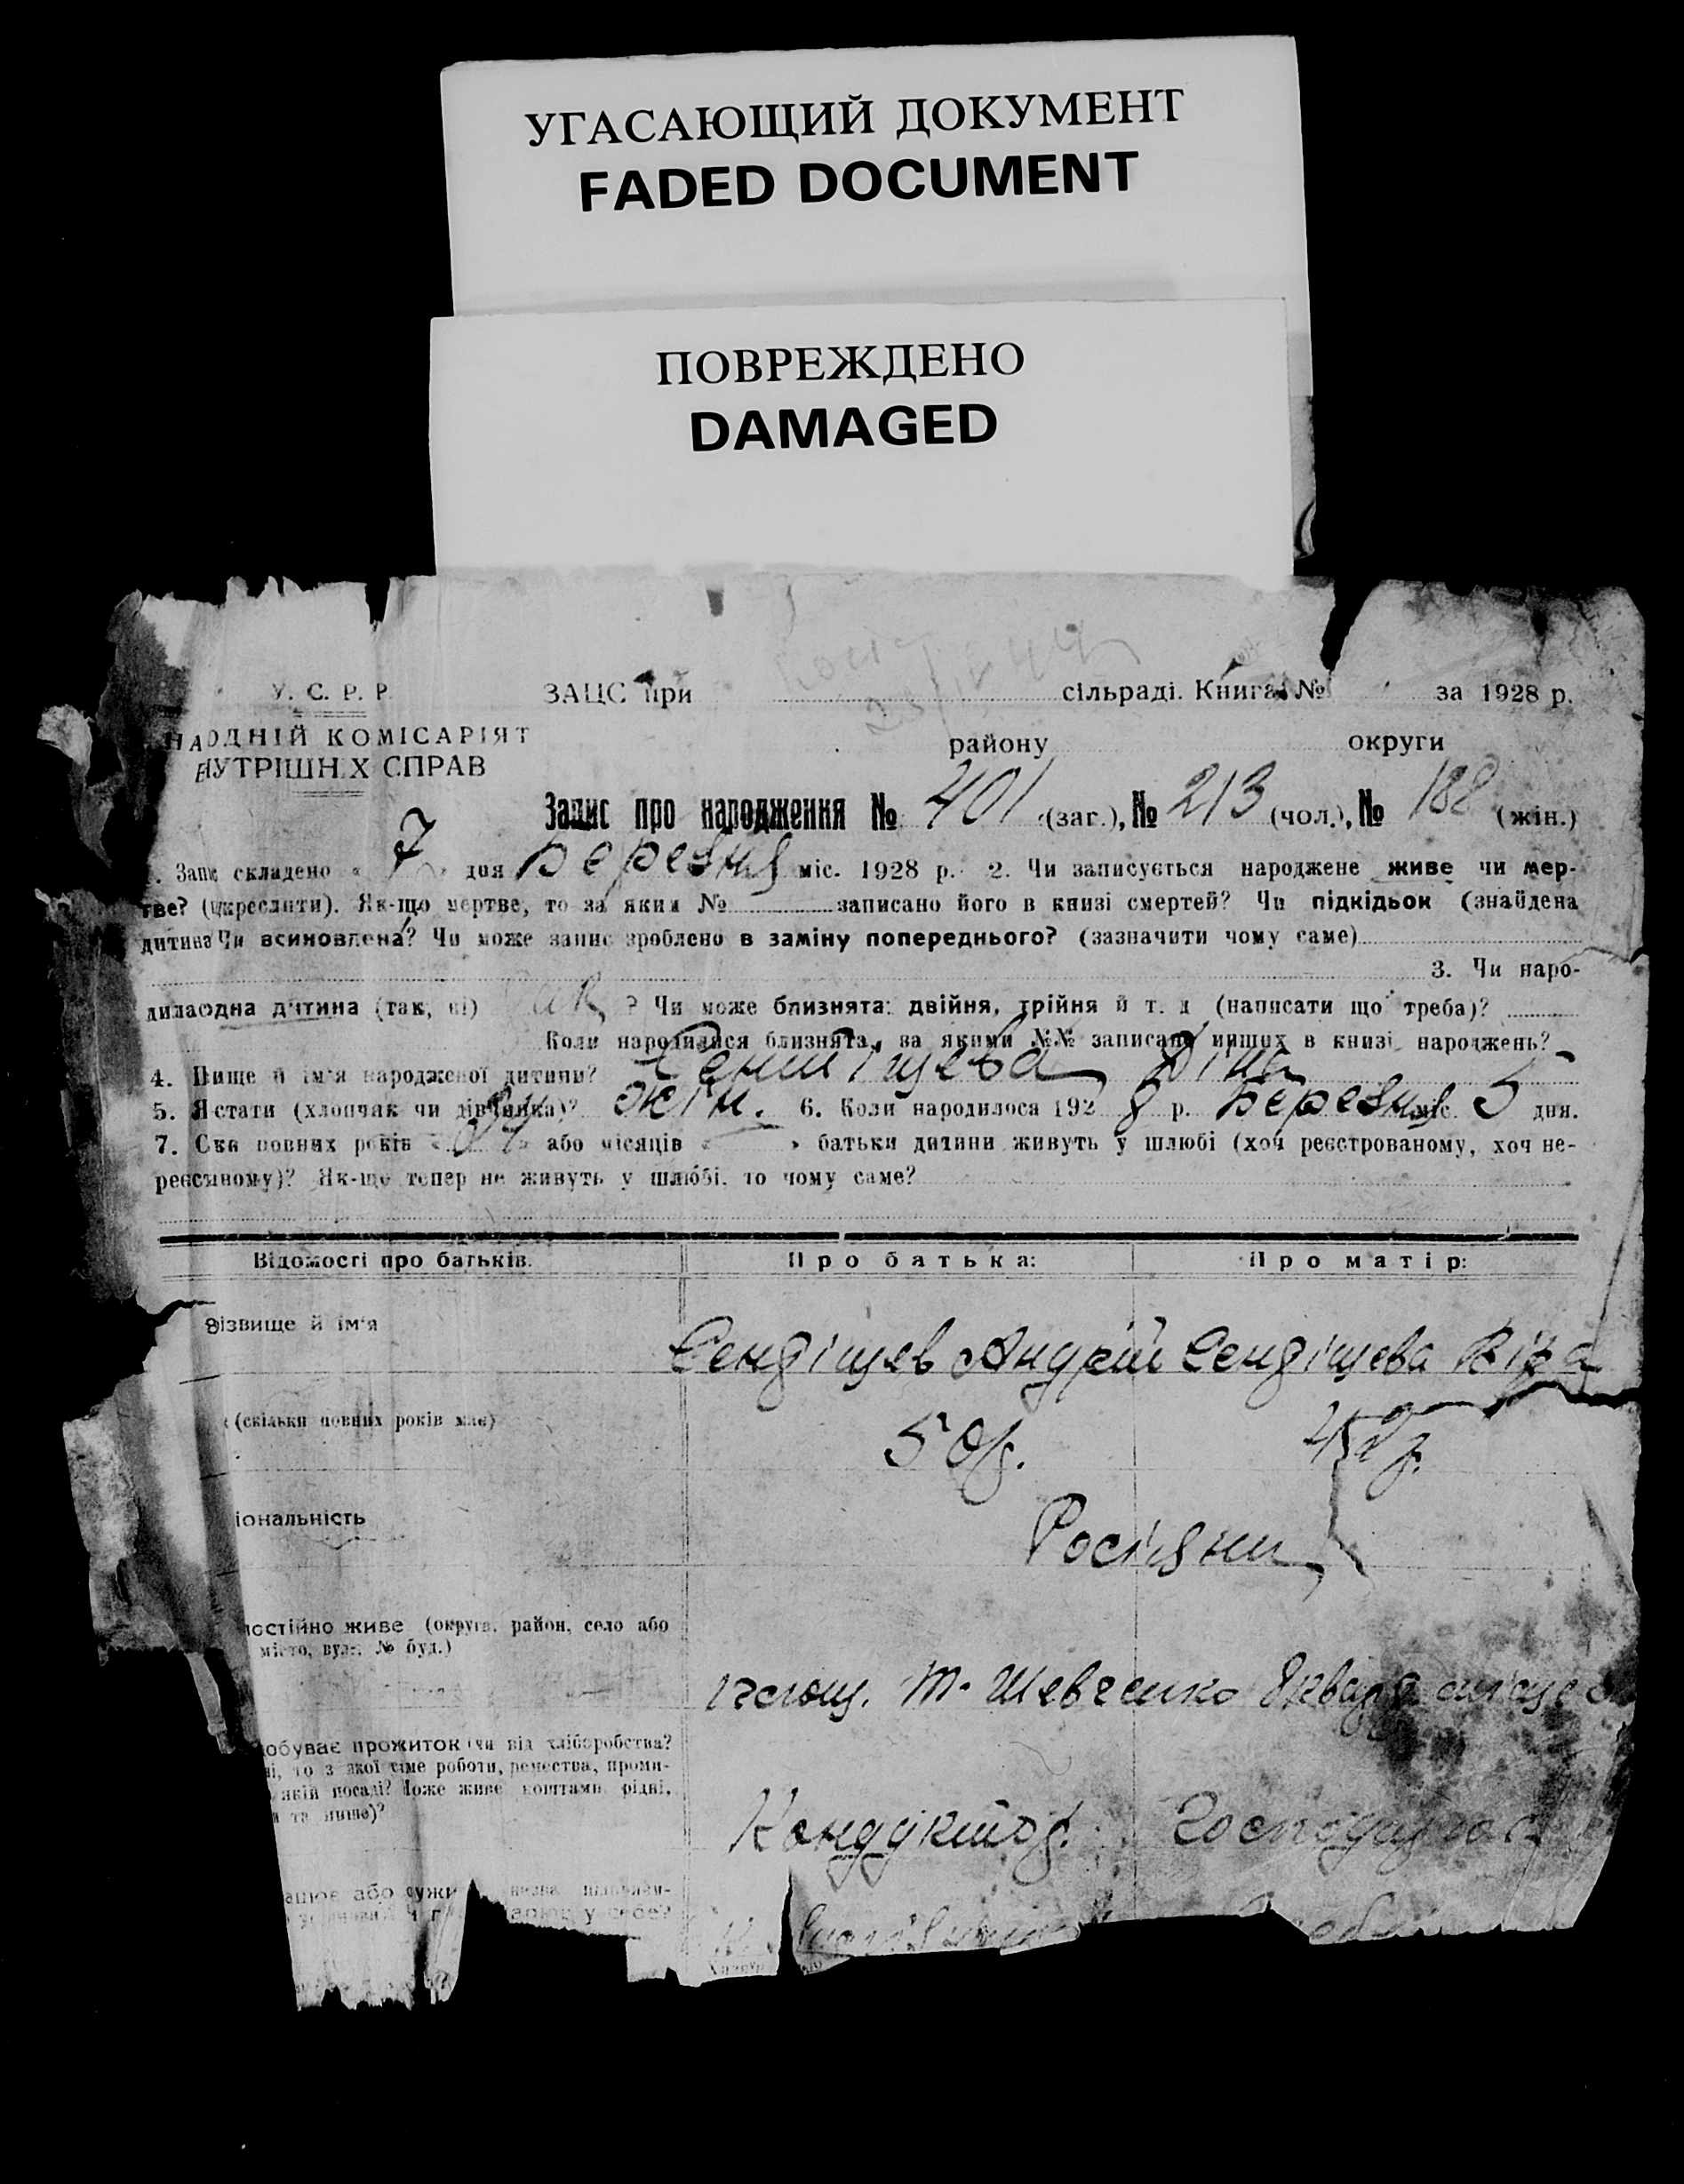 УГАСАЮЩИЙ ДОКУМЕНТ
FADED DOCUMENT
ПОВРЕЖДЕНО
DAMAGED
У. С. Р. Р.
ЗАЦС при сільраді. Книга № за 1928 р.
НАОДНІЙ КОМІСАРІЯТ
району округи
ВНУТРІШН.Х СПРАВ
Запис про народження № 401 (заг.), № 213 (чол.), № 188 (жін.)
1. Запис складено « 7 » дня Березня міс. 1928 р. 2. Чи записується народжене живе чи мер-
тве? (викреслити). Як-що мертве, то за яким № записано його в книзі смертей? Чи підкідьок (знайдена
дитина Чи всиновлена? Чи може запис зроблено в заміну попереднього? (зазначити чому саме)
3. Чи наро-
дила одна дитина (так, ні) так ? Чи може близнята: двійня, трійня й т. д (написати що треба)?
Коли народилися близнята, за якими №№ записано инших в книзі народжень?
4. Вище й ім'я народженої дитини? Діна
5. Я стати (хлопчак чи дівчинка)? жін. 6. Коли народилося 192 8 р. Березня міс. 5 дня.
7. Ски повних років « » або місяців « » батьки дитини живуть у шлюбі (хоч реєстрованому, хоч не-
реєсиному)? Як-що тепер не живуть у шлюбі, то чому саме?
Відомості про батьків. Про батька: Про матір:
Візвище й ім'я
Сендіщев Андрій Сендіщева Віра
(скільки повних років має)
50р. 42р.
іональність
Росіяни
постійно живе (округа, район, село або
місто, вул., № буд.)
Т. Шевченко
обуває прожиток (чи від хліборобства?
ні, то з якої саме роботи, ремества, проми-
якій посаді? Може живе коштами рідні,
та инше)?
Кондуктор. Господарює
ацює або служи
у себе?